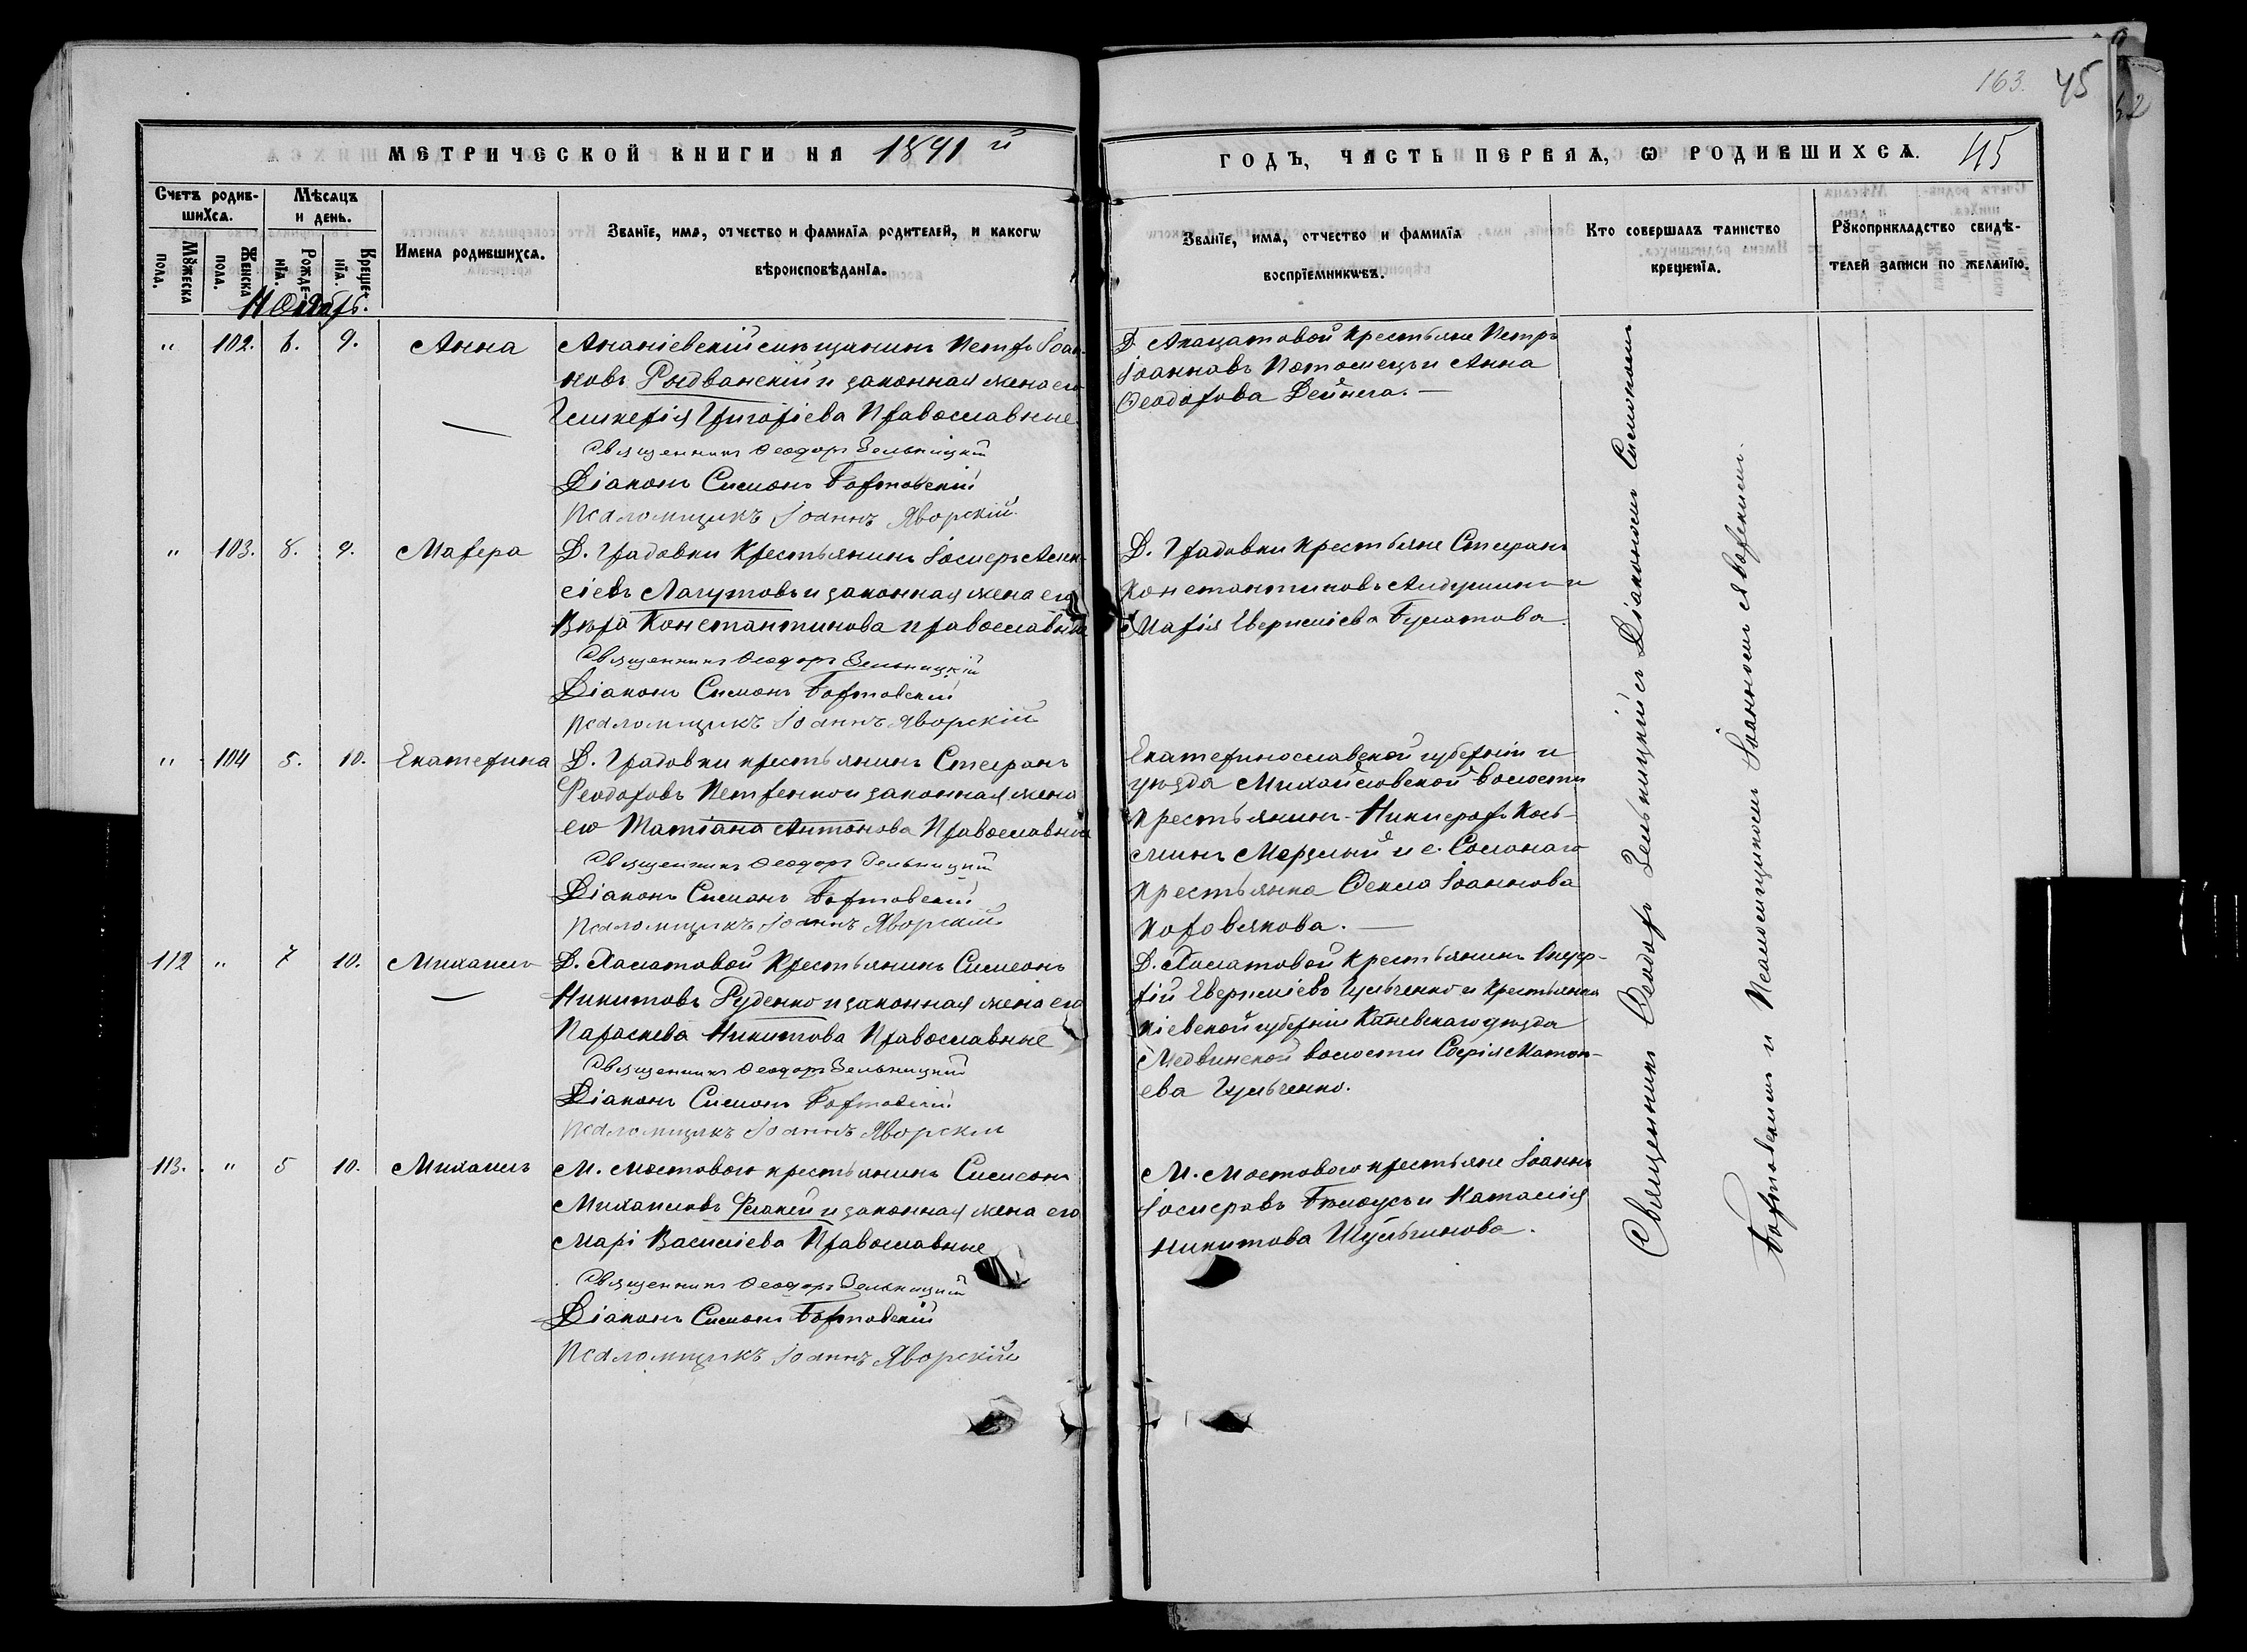 163. 45
МЕТРИЧЕСКОЙ КНИГИ НА 1891 й
ГОДЪ, ЧАСТЬ ПЕРВАЯ, Ѡ РОДИВШИХСЯ. 45
Счетъ родив-
шихся.
Мѣсяцъ
и день.
Мꙋжеска
пола.
Женска
пола.
Рожде-
нїя.
Креще-
нїя.
Имена родившихся.
Званїе, имя, отчество и фамилїя родителей, и какогѡ
вѣроисповѣданїя.
Званїе, имя, отчество и фамилїя
воспрїемникѡвъ.
Кто совершалъ таинство
крещенїя.
Рꙋкоприкладство свидѣ-
телей записи по желанїю.
Ноябрь.
" 102. 6. 9. Анна
Ананіевскій мѣщанинъ Петръ Іоан-
новъ Рыдванскій и законная жена его
Гликерія Григоріева Православные
Священникъ Ѳеодоръ Зельницкій
Діаконъ Симонъ Бортовскій
Псаломщикъ Іоаннъ Яворскій
Крестьяне Петръ
Іоанновъ и Анна
Ѳеодорова
" 103. 8. 9. Мавра
Д. Градовки Крестьянинъ Іосифъ Алек-
сіевъ Лагутовъ и законная жена его
Вѣра Константинова православные
Священникъ Ѳеодоръ Зельницкій
Діаконъ Симонъ Бортовскій
Псаломщикъ Іоаннъ Яворскій
Д. Градовки Крестьяне Стефанъ
Константиновъ и
Марія Евфиміева Булатова.
" 104 5. 10. Екатерина
Д. Градовки крестьянинъ Стефанъ
Ѳеодоровъ Петренко и законная жена
его Татіана Антонова Православные
Священникъ Ѳеодоръ Зельницкій
Діаконъ Симонъ Бортовскій
Псаломщикъ Іоаннъ Яворскій
Екатеринославской губерніи и
уѣзда Михайловской волости
крестьянинъ Никифоръ Кось-
минъ Мерзлый и с. Солонаго
крестьянка Ѳекла Іоаннова
Коровякова.
112 " 7 10. Михаилъ
Д. Халатовой Крестьянинъ Симеонъ
Никитовъ Руденко и законная жена его
Параскева Никитова Православные
Священникъ Ѳеодоръ Зельницкій
Діаконъ Симонъ Бортовскій
Псаломщикъ Іоаннъ Яворскій
Д. Халатовой Крестьянинъ Онуф-
рій Евфиміевъ Ильченко и крестьянка
Кіевской губерніи Каневскаго уѣзда
Медвинской волости Софія Матѳ-
ева Ильченко.
113. " 5 10. Михаилъ
М. Мостового крестьянинъ Симеонъ
Михаиловъ и законная жена его
Марія Василіева Православные
Священникъ Ѳеодоръ Зельницкій
Діаконъ Симонъ Бортовскій
Псаломщикъ Іоаннъ Яворскій
М. Мостового крестьяне Іоаннъ
Іосифовъ Бѣлоусъ и Наталія
Никитова Шульгинова.
Священникъ Ѳеодоръ Зельницкій съ Діакономъ Симономъ
Бортовскимъ и Псаломщикомъ Іоанномъ Яворскимъ.